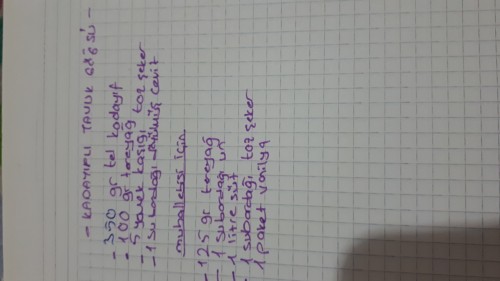 - KADAYIFLI TAVUK GÖĞSÜ -
- 350 gr tel kadayıf
- 100 gr tereyağ
- 5 yemek kaşığı toz şeker
- 1 subardağı çevit
muhallebisi için
- 125 gr tereyağ
- 1 subardağ un
- 1 litre süt
- 1 subardağı toz şeker
1 paket vanilya